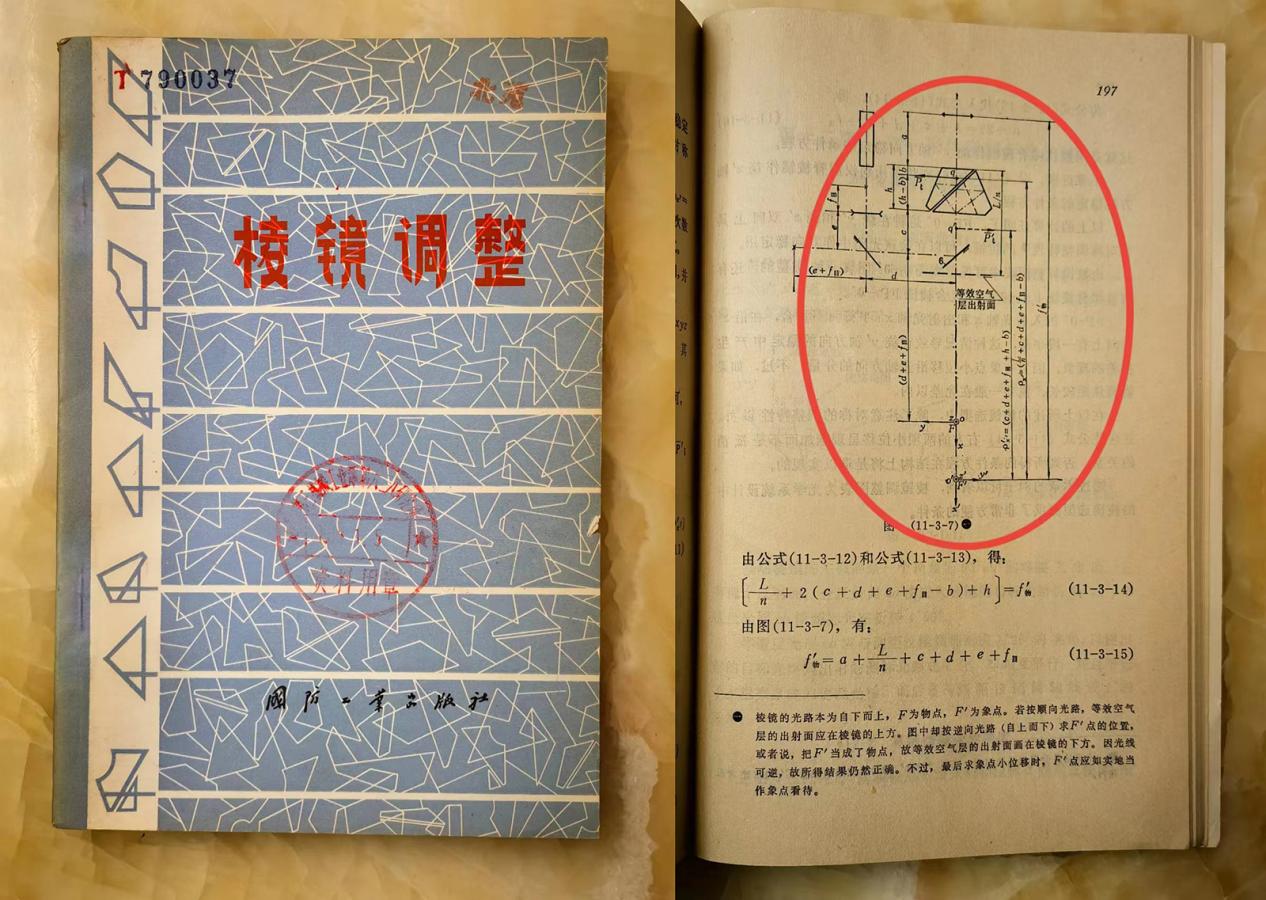 T 790037
北京
棱镜调整
资料用章
国防工业出版社
197
a
h
(h-b)
b
c
e
(e+fⅡ)
d
L/n
P̄i
P̄'i
q
q'
等效空气
层出射面
(d+e+fⅡ)
f'物
y
x
F
F'
图 (11-3-7)㊀
由公式(11-3-12)和公式(11-3-13)，得：
[L/n+2(c+d+e+fⅡ-b)+h]=f'物 (11-3-14)
由图(11-3-7)，有：
f'物=a+L/n+c+d+e+fⅡ (11-3-15)
㊀ 棱镜的光路本为自下而上，F为物点，F'为象点。若按顺向光路，等效空气
层的出射面应在棱镜的上方。图中却按逆向光路（自上而下）求F'点的位置，
或者说，把F'当成了物点，故等效空气层的出射面画在棱镜的下方。因光线
可逆，故所得结果仍然正确。不过，最后求象点小位移时，F'点应如实地当
作象点看待。